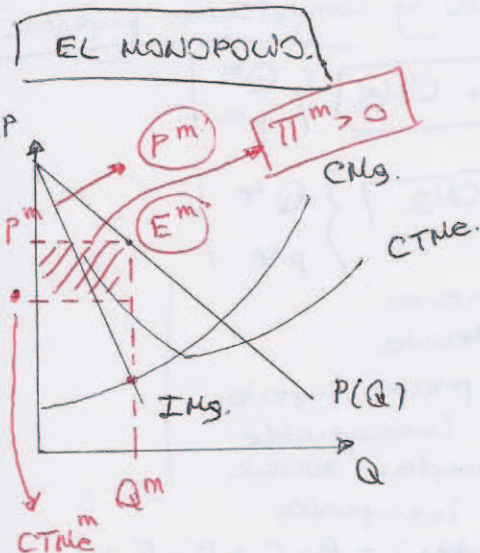 EL MONOPOLIO.
P
P^m
π^m > 0
CMg.
P^m
E^m
CTMe.
IMg.
P(Q)
Q^m
Q
CTMe^m